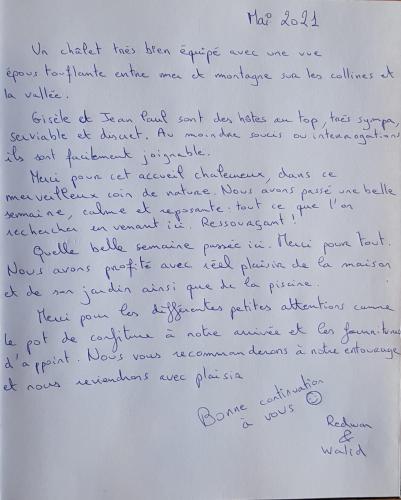 Mai 2021
Un châlet très bien équipé avec une vue
époustouflante entre mer et montagne sur les collines et
la vallée.
Gisèle et Jean Paul sont des hôtes au top, très sympa,
serviable et discret. Au moindre soucis ou interrogations
ils sont facilement joignable.
Merci pour cet accueil chaleureux, dans ce
merveilleux coin de nature. Nous avons passé une belle
semaine, calme et reposante. tout ce que l'on
rechercher en venant ici. Ressourçant!
Quelle belle semaine passée ici. Merci pour tout.
Nous avons profité avec réel plaisir de la maison
et de son jardin ainsi que de la piscine.
Merci pour les différentes petites attentions comme
le pot de confiture à notre arrivée et les fournitures
d'appoint. Nous vous recommanderons à notre entourage
et nous reviendrons avec plaisir
Bonne continuation
à vous ☺
Redwan
&
Walid